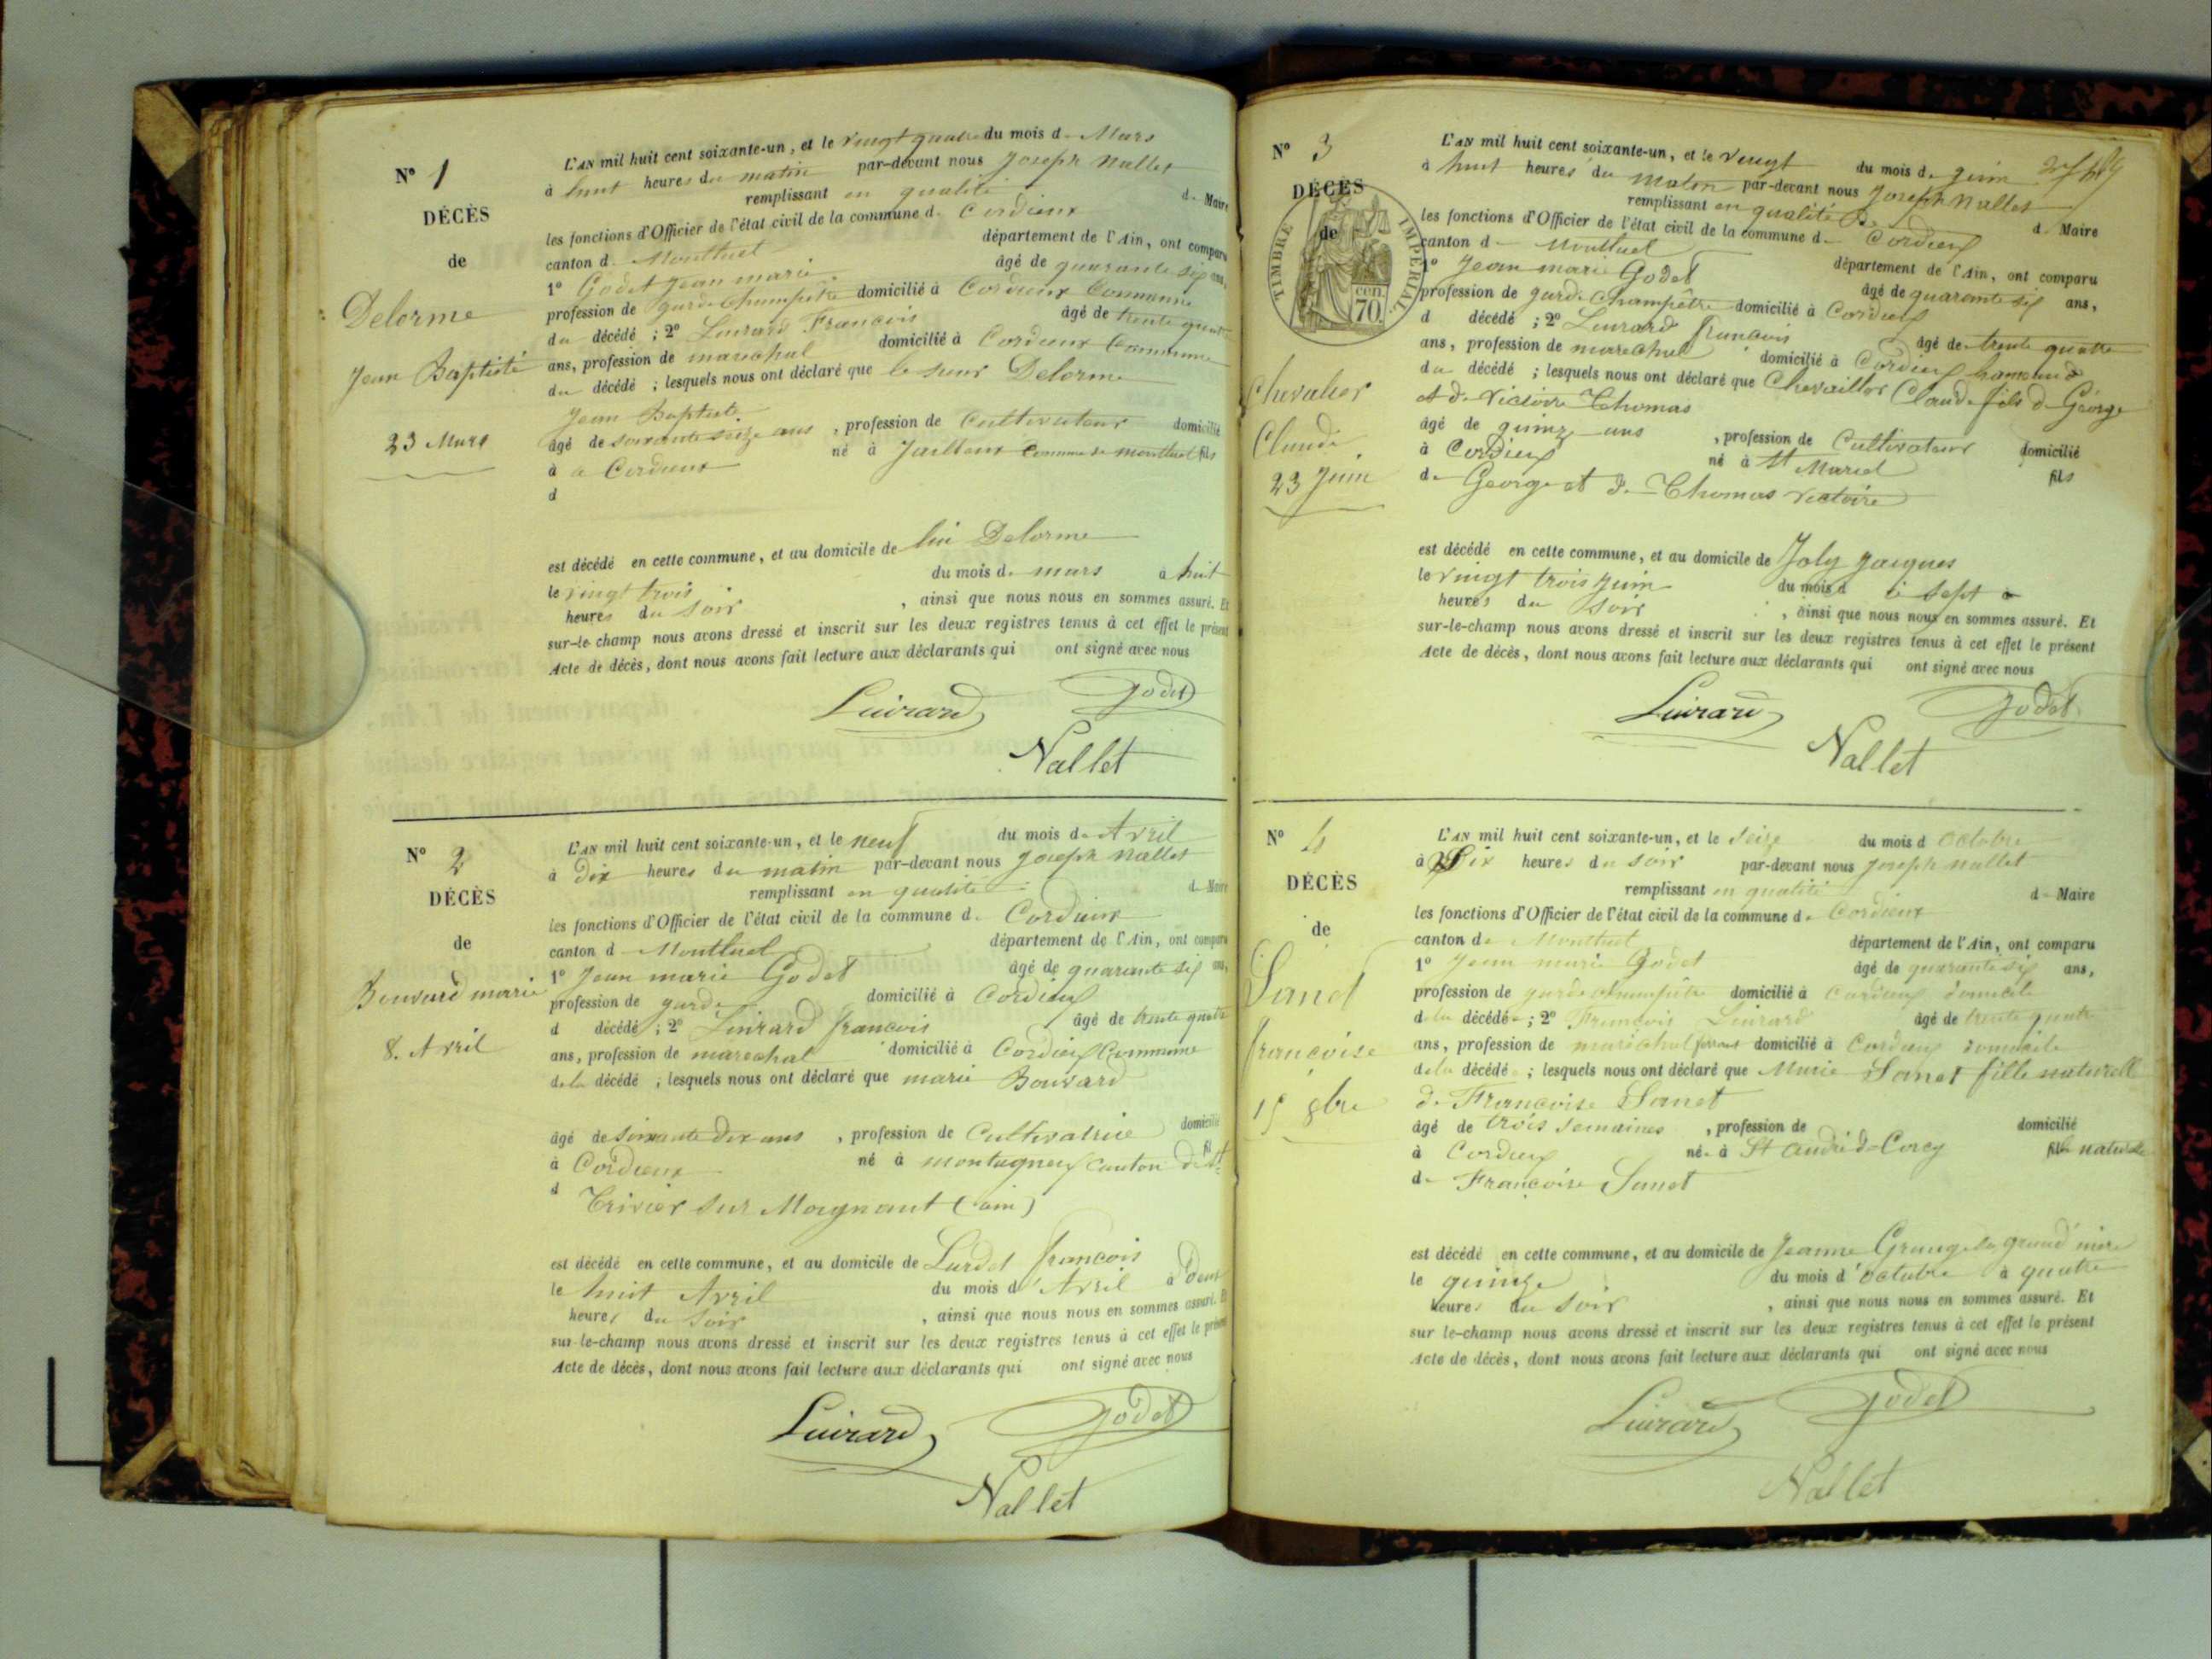 N° 1
DÉCÈS
de
Delorme
Jean Baptiste
23 Mars
L'AN mil huit cent soixante-un, et le vingt quatre du mois de Mars
à huit heures du matin par-devant nous Joseph Nallet
remplissant en qualité de Maire
les fonctions d'Officier de l'état civil de la commune de Cordieux
canton de Montluel département de l'Ain, ont comparu
1° Godet Jean marie âgé de quarante six ans,
profession de garde Champêtre domicilié à Cordieux Commune
du décédé ; 2° Luirard François âgé de trente quatre
ans, profession de marechal domicilié à Cordieux Commune
du décédé ; lesquels nous ont déclaré que le sieur Delorme
Jean Baptiste
âgé de soixante seize ans, profession de Cultivateur domicilié
à a Cordieux né à Jailleux Commune de montluel fils
d
est décédé en cette commune, et au domicile de lui Delorme
le vingt trois du mois de mars à huit
heures du soir, ainsi que nous nous en sommes assuré. Et
sur-le-champ nous avons dressé et inscrit sur les deux registres tenus à cet effet le présent
Acte de décès, dont nous avons fait lecture aux déclarants qui ont signé avec nous
Luirard Godet
Nallet
N° 2
DÉCÈS
de
Bouvard marie
8. Avril
L'AN mil huit cent soixante-un, et le neuf du mois de Avril
à dix heures du matin par-devant nous Joseph Nallet
remplissant en qualité de Maire
les fonctions d'Officier de l'état civil de la commune de Cordieux
canton d Montluel département de l'Ain, ont comparu
1° Jean marie Godet âgé de quarante six ans,
profession de garde domicilié à Cordieux
d décédé ; 2° Luirard françois âgé de trente quatre
ans, profession de marechal domicilié à Cordieux Commune
de la décédé ; lesquels nous ont déclaré que marie Bouvard
âgé de soixante dix ans, profession de Cultivatrice domicilié
à Cordieux né à montagneux Canton de St
d Trivier sur Moignant (ain)
est décédé en cette commune, et au domicile de Lardet françois
le huit Avril du mois d'Avril à deux
heures du soir, ainsi que nous nous en sommes assuré. Et
sur-le-champ nous avons dressé et inscrit sur les deux registres tenus à cet effet le présent
Acte de décès, dont nous avons fait lecture aux déclarants qui ont signé avec nous
Luirard Godet
Nallet
N° 3
DÉCÈS
de
TIMBRE IMPÉRIAL
cen.
70.
Chevalier
Claude
23 Juin
L'AN mil huit cent soixante-un, et le vingt du mois de juin
à huit heures du matin par-devant nous Joseph Nallet
remplissant en qualité de d Maire
les fonctions d'Officier de l'état civil de la commune de Cordieux
canton d Montluel département de l'Ain, ont comparu
1° Jean marie Godet âgé de quarante six ans,
profession de garde Champêtre domicilié à Cordieux
d décédé ; 2° Luirard François âgé de trente quatre
ans, profession de marechal domicilié à Cordieux
du décédé ; lesquels nous ont déclaré que Chevaillier Claude fils de George
et de Victoire Thomas
âgé de quinze ans, profession de Cultivateur domicilié
à Cordieux né à St Marcel fils
de George et de Thomas Victoire
est décédé en cette commune, et au domicile de Joly Jacques
le vingt trois Juin du mois d à sept
heures du soir, ainsi que nous nous en sommes assuré. Et
sur-le-champ nous avons dressé et inscrit sur les deux registres tenus à cet effet le présent
Acte de décès, dont nous avons fait lecture aux déclarants qui ont signé avec nous
Luirard Godet
Nallet
N° 4
DÉCÈS
de
Sanet
françoise
15 8bre
L'AN mil huit cent soixante-un, et le seize du mois d Octobre
à Dix heures du soir par-devant nous Joseph Nallet
remplissant en qualité de Maire
les fonctions d'Officier de l'état civil de la commune de Cordieux
canton de Montluel département de l'Ain, ont comparu
1° Jean marie Godet âgé de quarante six ans,
profession de garde champêtre domicilié à Cordieux domicile
de la décédée ; 2° François Luirard âgé de trente quatre
ans, profession de maréchal ferrant domicilié à Cordieux domicile
de la décédé ; lesquels nous ont déclaré que Marie Sanet fille naturelle
de Françoise Sanet
âgé de trois semaines, profession de domicilié
à Cordieux né à St André d Corcy fille naturelle
de Françoise Sanet
est décédé en cette commune, et au domicile de Jeanne Grange sa grand mère
le quinze du mois d'octobre à quatre
heures du soir, ainsi que nous nous en sommes assuré. Et
sur le-champ nous avons dressé et inscrit sur les deux registres tenus à cet effet le présent
Acte de décès, dont nous avons fait lecture aux déclarants qui ont signé avec nous
Luirard Godet
Nallet